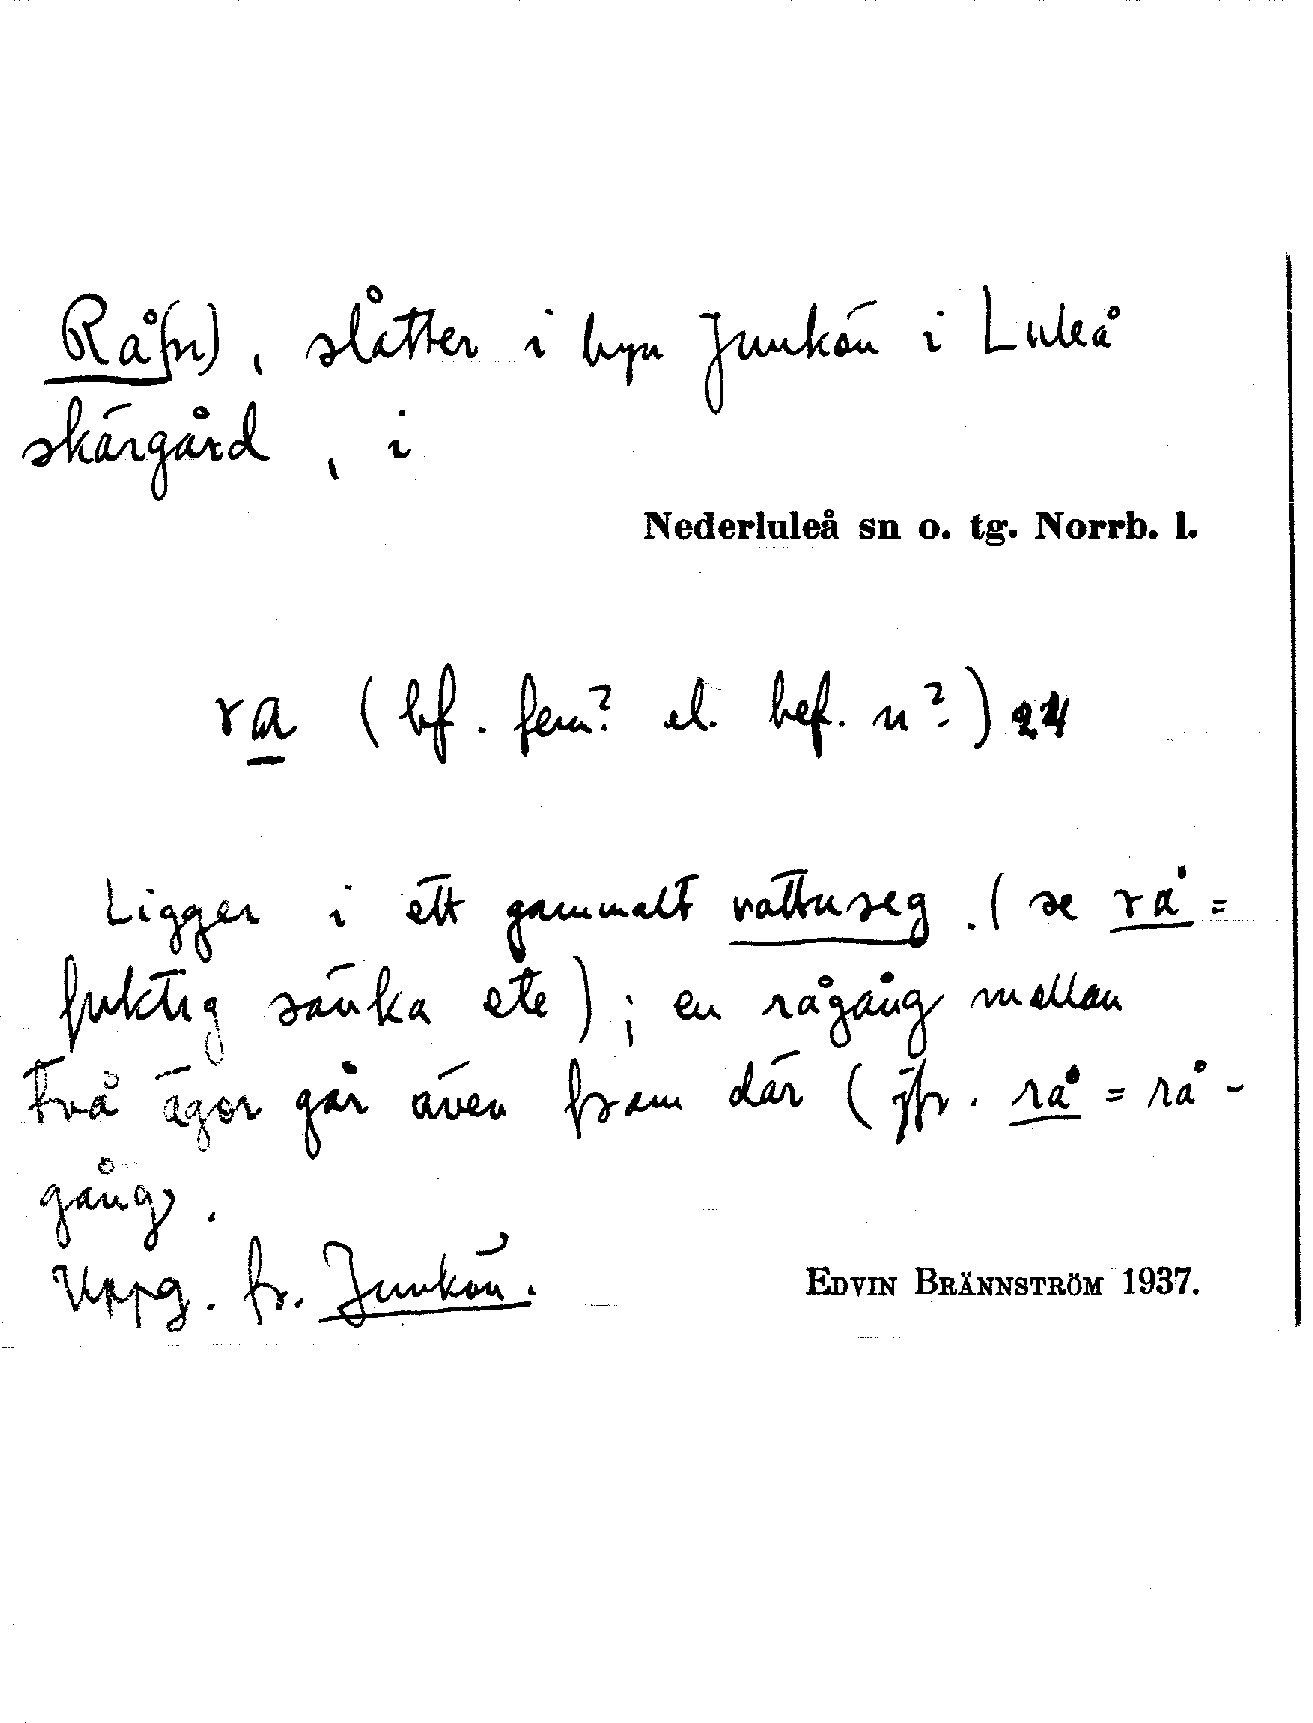 Rå(n), slåtter i byn Junkön i Luleå
skärgård, i
Nederluleå sn o. tg. Norrb. l.
ra (bf. fem? el. bef. n?) 24
Ligger i ett gammalt vattuseg. (se rå =
fuktig sänka etc); en rågång mellan
två ägor går även fram där (jfr. rå = rå-
gång.
Uppg. fr. Junkön.
EDVIN BRÄNNSTRÖM 1937.